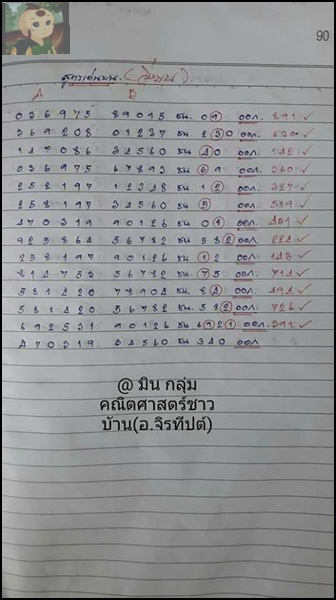 90
สูตรเด่นบน. (วิ่งบน)
A B
036975 89015 ชน. 0 9 ออก. 891 ✓
369208 01237 ชน. 230 ออก. 630 ✓
147086 34560 ชน. 40 ออก. 142 ✓
036975 67893 ชน. 69 ออก. 360 ✓
258197 12348 ชน. 12 ออก. 327 ✓
258197 34560 ชน. 5 ออก. 589 ✓
470319 90126 ชน. 01 ออก. 451 ✓
925864 56782 ชน. 582 ออก. 224 ✓
258197 90126 ชน. 12 ออก. 143 ✓
814753 56782 ชน. 75 ออก. 714 ✓
581420 78904 ชน. 84 ออก. 494 ✓
581420 56782 ชน. 582 ออก. 726 ✓
692531 90126 ชน. 6921 ออก. 291 ✓
470319 34560 ชน 340 ออก
@ มิน กลุ่ม
คณิตศาสตร์ชาว
บ้าน(อ.จิรทีปต์)